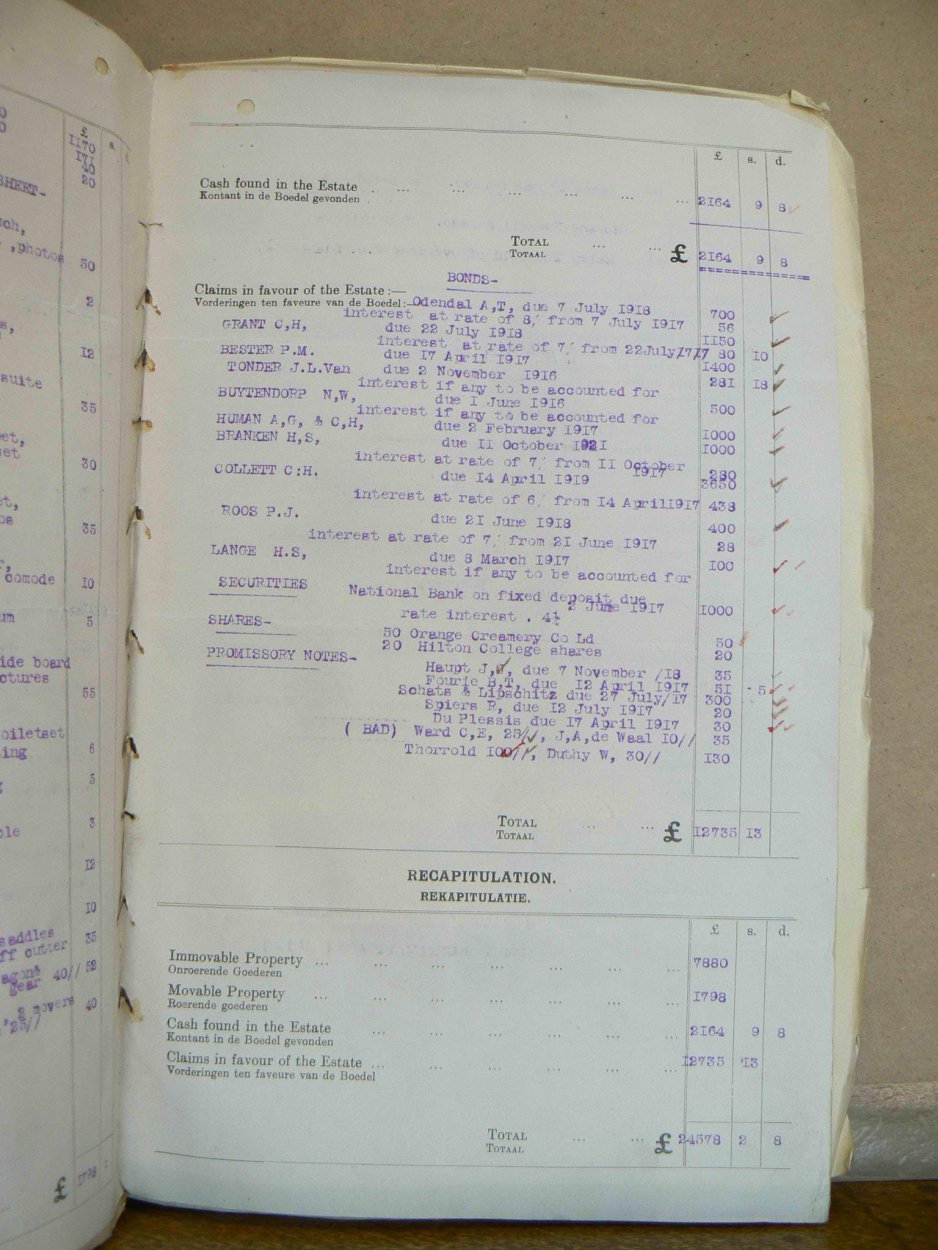 £ s.
1170
171
40
20
SHEET-
nch,
,photos 50
2
s, 12
suite
35
et,
set 30
et,
os 35
r,
comode 10
um 5
ide board
ctures 55
oiletset
ing 6
5
ole 3
12
10
saddles 35
ff cutter
agons 40// 52
gear
2 movers 40
'25//
£ 1798
£ s. d.
Cash found in the Estate ... ... ... ... ... ... 2164 9 8
Kontant in de Boedel gevonden
TOTAL ... ... £ 2164 9 8
TOTAAL
BONDS-
Claims in favour of the Estate :—
Vorderingen ten faveure van de Boedel:—Odendal A,T, due 7 July 1918 700
interest at rate of 8, from 7 July 1917 56
GRANT C,H, due 22 July 1918 1150
interest at rate of 7, from 22July/17/17 80 10
BESTER P.M. due 17 April 1917 1400
TONDER J.L.Van due 2 November 1916 281 18
interest if any to be accounted for
BUYTENDORP N,W, due 1 June 1916 500
interest if any to be accounted for
HUMAN A,G, & C,H, due 2 February 1917 1000
BRANKEN H,S, due 11 October 1921 1000
interest at rate of 7, from 11 October 1917 280
COLLETT C:H. due 14 April 1919 3650
interest at rate of 6, from 14 April1917 438
ROOS P.J. due 21 June 1918 400
interest at rate of 7, from 21 June 1917 28
LANGE H.S, due 8 March 1917 100
interest if any to be accounted for
SECURITIES National Bank on fixed deposit due
2 June 1917 1000
rate interest . 4½
SHARES-
50 Orange Creamery Co Ld 50
20 Hilton College shares 20
PROMISSORY NOTES-
Haupt J,J, due 7 November /18 35
Fourie B,T, due 12 April 1917 51 - 5
Schats & Lipschitz due 27 July/17 300
Spiers R, due 12 July 1917 20
Du Plessis due 17 April 1917 30
( BAD) Ward C,E, 25//, J,A,de Waal 10// 35
Thorrold 100//, Duthy W, 30// 130
TOTAL ... ... £ 12735 13
TOTAAL
RECAPITULATION.
REKAPITULATIE.
£ s. d.
Immovable Property ... ... ... ... ... ... ... 7880
Onroerende Goederen
Movable Property ... ... ... ... ... ... ... 1798
Roerende goederen
Cash found in the Estate ... ... ... ... ... ... 2164 9 8
Kontant in de Boedel gevonden
Claims in favour of the Estate ... ... ... ... ... ... 12735 13
Vorderingen ten faveure van de Boedel
TOTAL ... ... £ 24578 2 8
TOTAAL